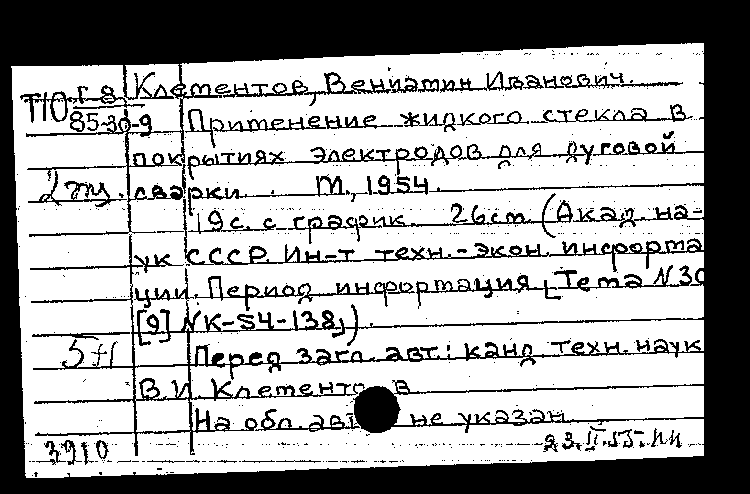 Г-8 Клементов, Вениамин Иванович.
П10 85-30-9 Применение жидкого стекла в
покрытиях электродов для дуговой
2 экз. сварки. М., 1954.
19 с. с график. 26 см. (Акад. на-
ук СССР. Ин-т техн.-экон. информа
ции. Период информация [Тема №30
[9] № К-54-138]).
5Н Перед загл. авт.: канд техн. наук
В. И. Клементов
На обл. авт не указан.
3910 23.II.55.НН